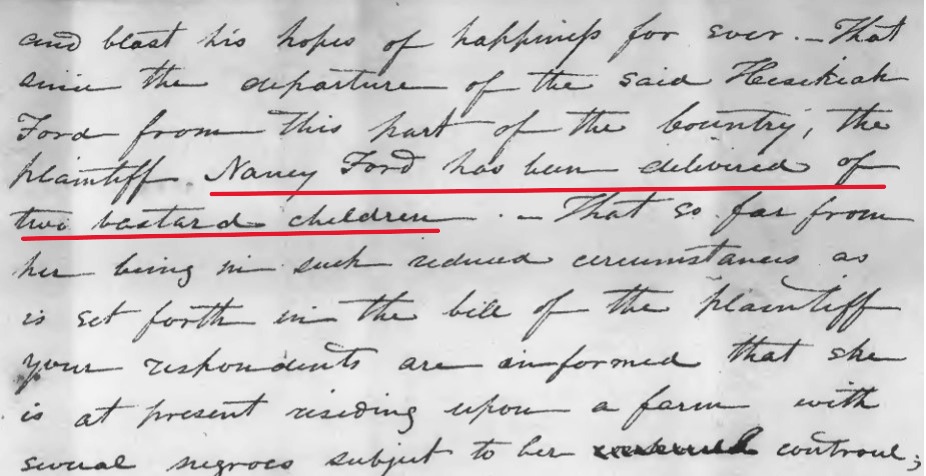 and blast his hopes of happiness for ever. – That
since the departure of the said Hesekiah
Ford from this part of the Country, the
plaintiff. Nancy Ford has been delivered of
two bastard children . – That so far from
her being in such reduced circumstances as
is set forth in the bill of the plaintiff
your respondents are informed that she
is at present residing upon a farm with
several negroes subject to her controul;